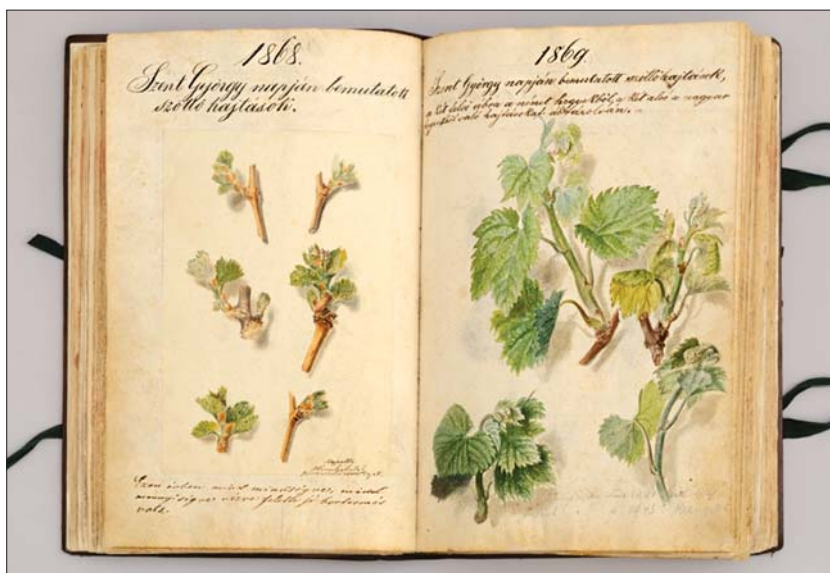 1868.
Szent György napján bemutatott
szőllő hajtások.
Ezen évben mind minőségre, mind
mennyiségre nézve felette jó bortermés
volt.
1869.
Szent György napján bemutatott szőllőhajtások,
a két felső ábra a német hegyekből, a két alsó a magyar
hegyekből való hajtásokat ábrázolván.